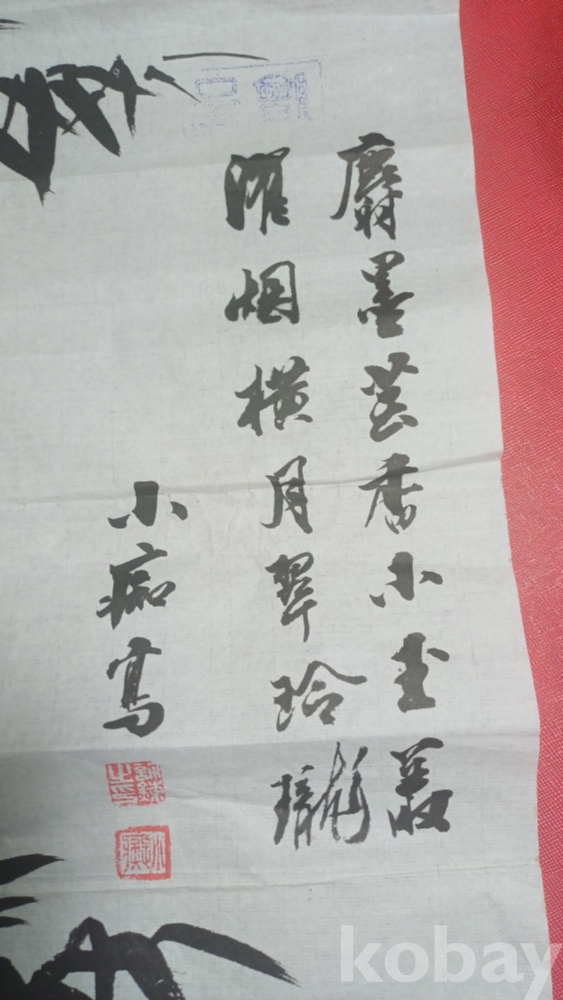 麝墨芸香小玉叢
濯烟橫月翠玲瓏
小痴寫
kobay